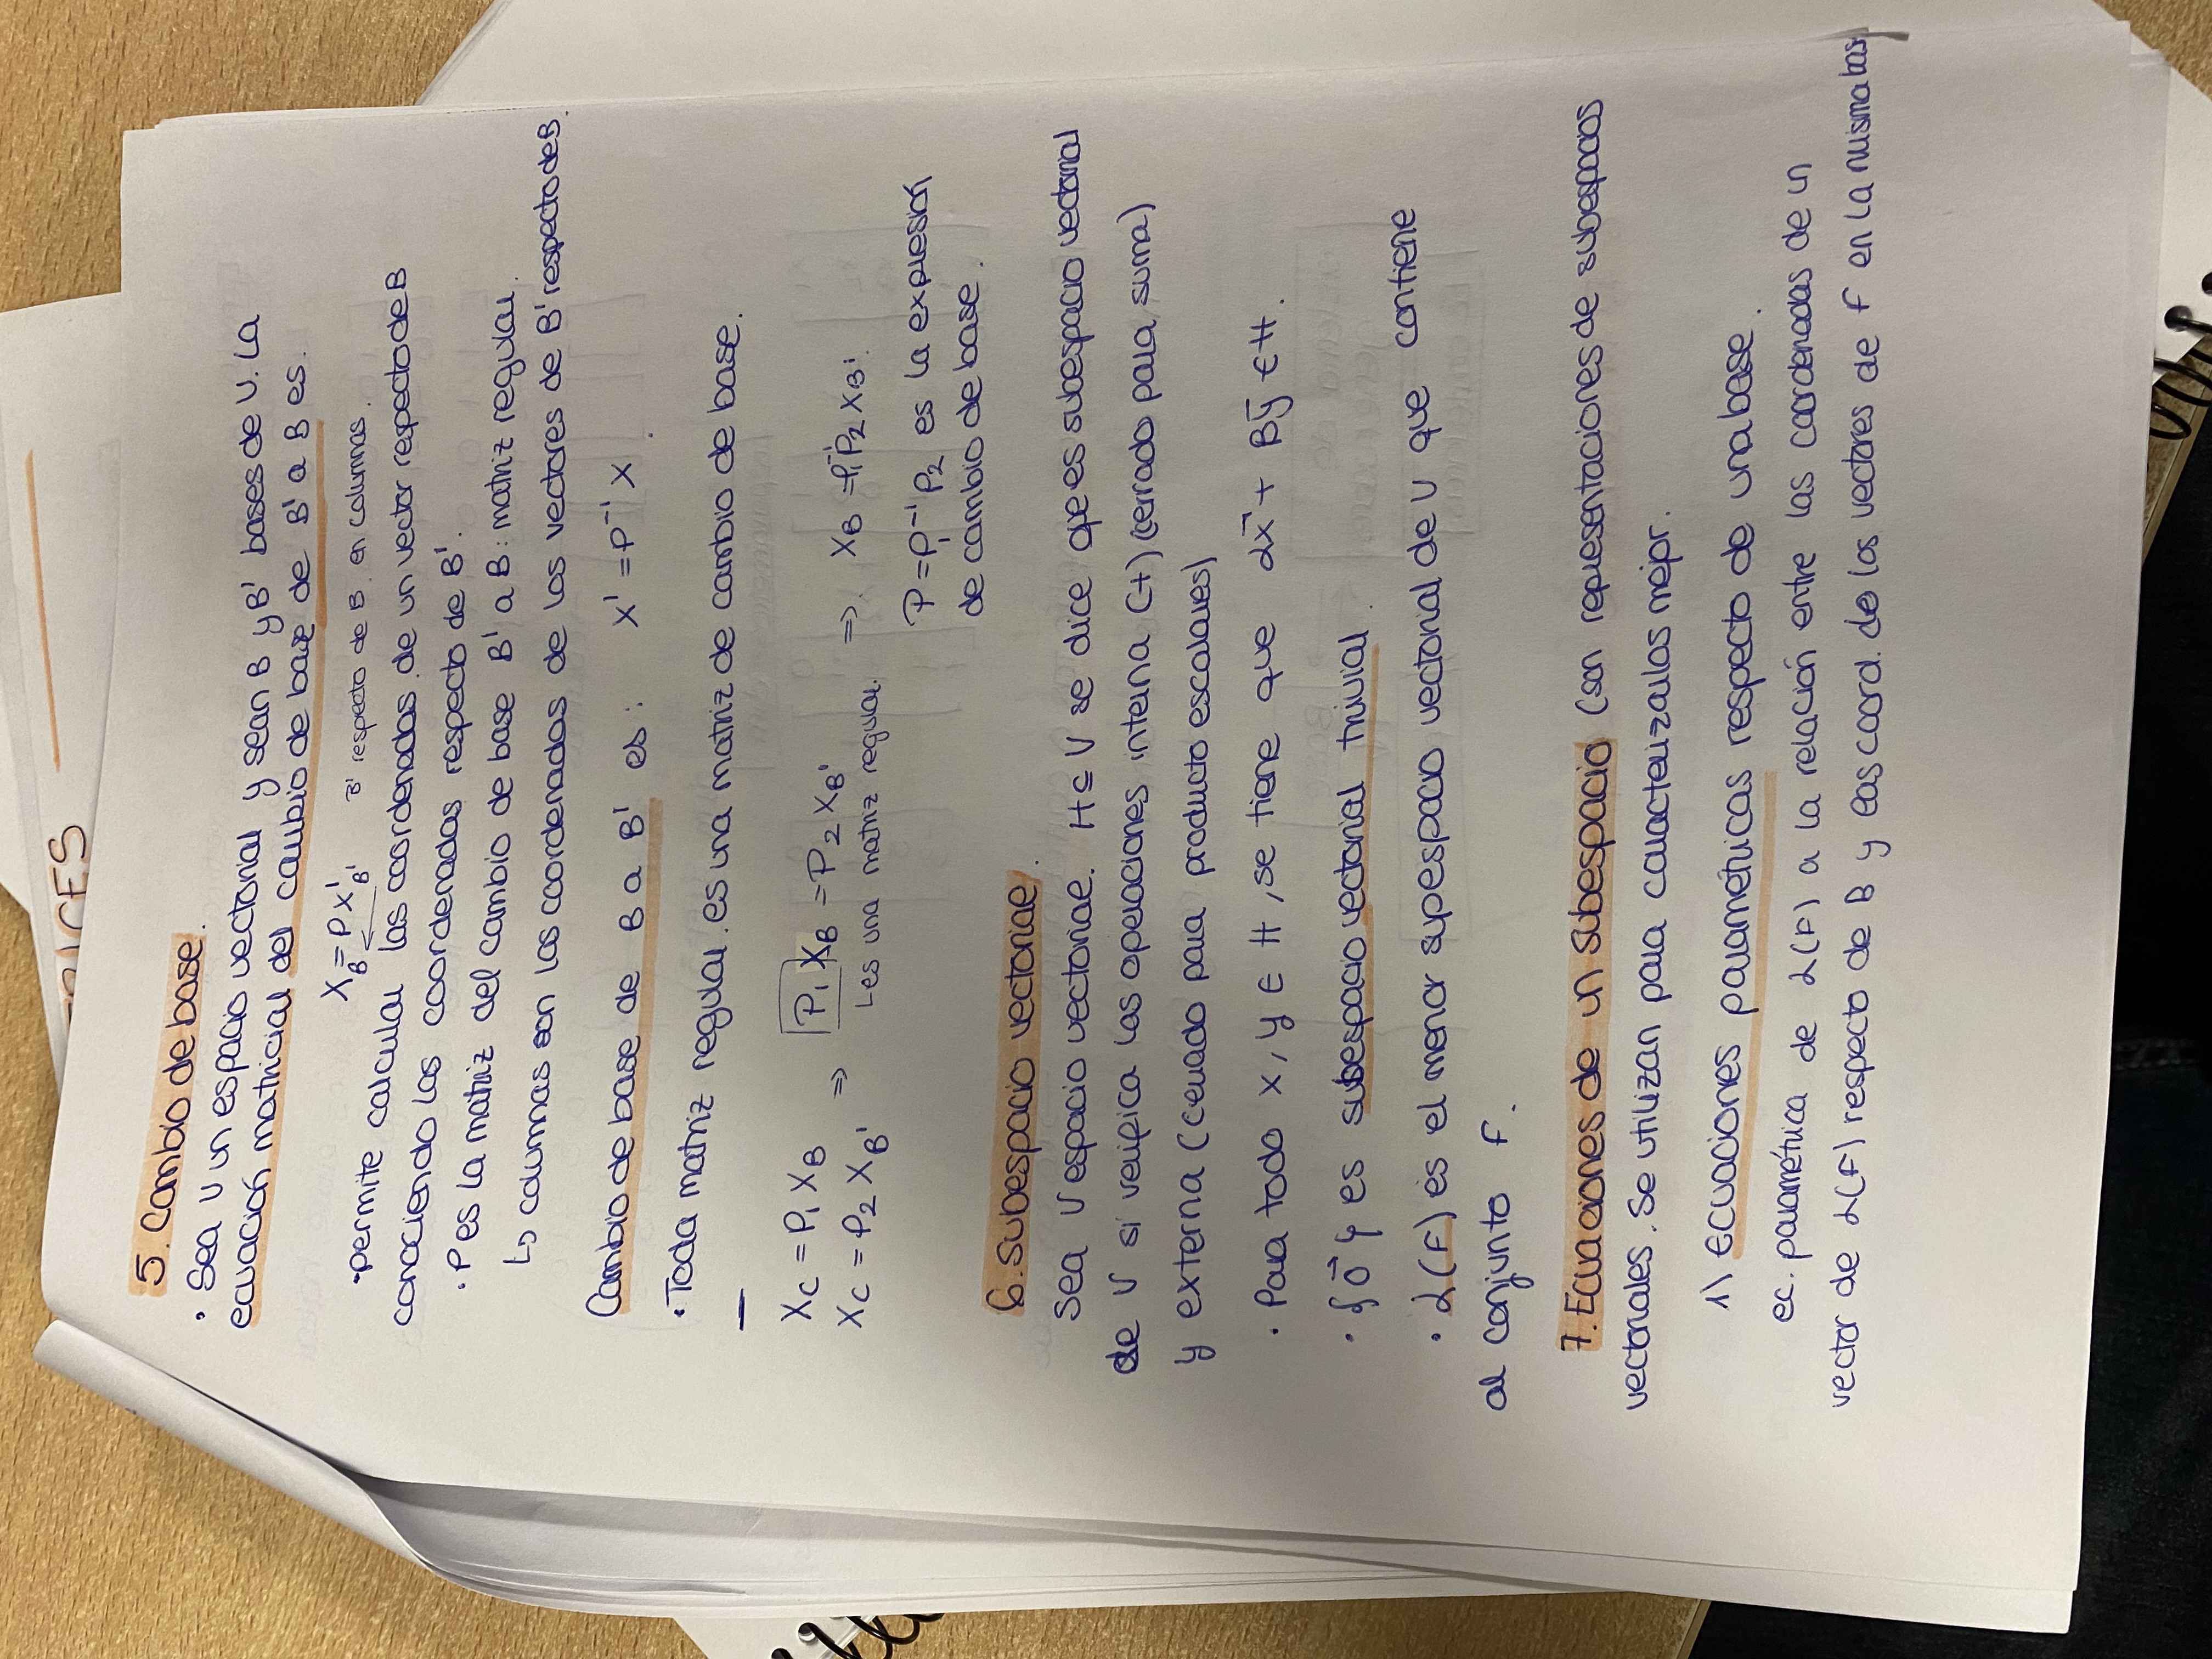 TRICES
5. Cambio de base.
· Sea V un espacio vectorial y sean B y B' bases de V. La
ecuación matricial del cambio de base de B' a B es.
X_B = P X'_B' B' respecto de B en columnas.
· permite calcular las coordenadas de un vector respecto de B
conociendo las coordenadas respecto de B'.
· P es la matriz del cambio de base B' a B: matriz regular.
↳ columnas son las coordenadas de los vectores de B' respecto de B.
Cambio de base de B a B' es: X' = P⁻¹ X.
· Toda matriz regular. es una matriz de cambio de base.
X_C = P₁ X_B
X_C = P₂ X_B'
⇒ P₁ X_B = P₂ X_B'
↳ es una matriz regular.
⇒. X_B = P₁⁻¹ P₂ X_B'.
P = P₁⁻¹ P₂ es la expresión
de cambio de base.
6. Subespacio vectorial.
Sea V espacio vectorial. H ⊆ V se dice que es subespacio vectorial
de V si verifica las operaciones interna (+) (cerrado para suma)
y externa (cerrado para producto escalares)
· Para todo x, y ∈ H, se tiene que αx⃗ + βȳ ∈ H.
· {0⃗} es subespacio vectorial trivial.
· L(F) es el menor supespacio vectorial de V que contiene
al conjunto F.
7. Ecuaciones de un subespacio (son representaciones de subespacios
vectoriales. Se utilizan para caracterizarlos mejor.
1) Ecuaciones paramétricas respecto de una base.
ec. paramétrica de L(F) a la relación entre las coordenadas de un
vector de L(F) respecto de B y las coord. de los vectores de F en la misma bas